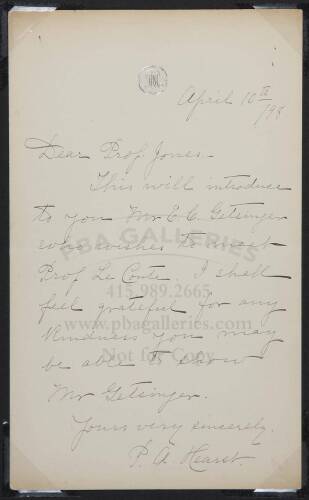 April 10th
/98
Dear Prof Jones -
This will introduce
to you Mr E. C. Getsinger
who wishes to meet
Prof Le Conte. I shall
feel grateful for any
kindness you may
be able to show
Mr Getsinger.
Yours very sincerely,
P. A. Hearst.
PBA GALLERIES
415.989.2665
www.pbagalleries.com
Not for Copy